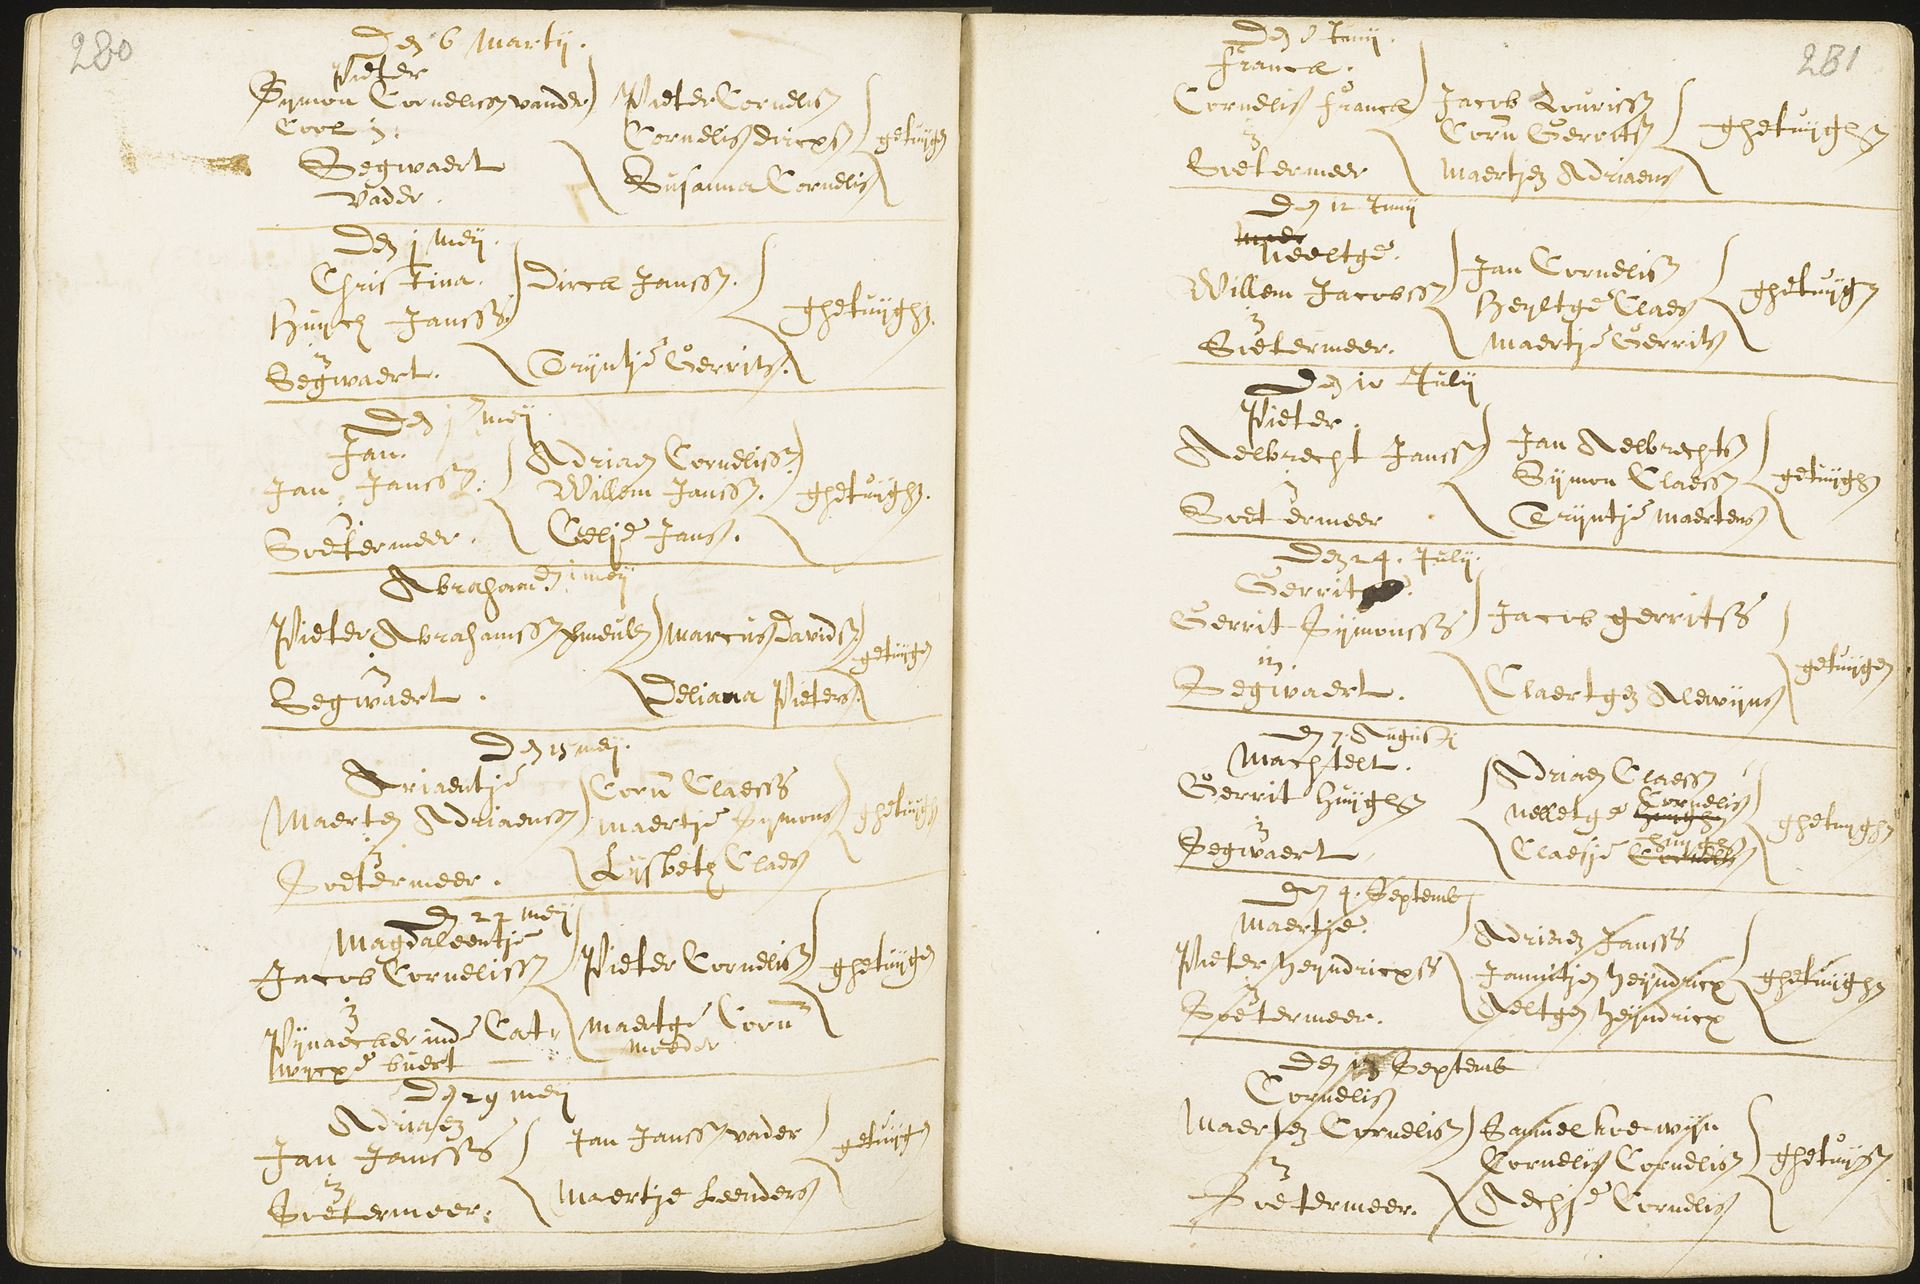 280
Den 6 Martij.
Pieter
Sijmon Corneliss vander
Cool in
Segwaert
vader.
Pieter Cornelis
Cornelis dircxs
Susanna Cornelis
getuijgen
Den j Meij.
Christina.
Huijch Janss.
in
Segwaert.
Dirck Janss.
Trijntje Gerrits.
ghetuijghen.
Den j meij.
Jan.
Jan Janss.
in
Soetermeer.
Adriaen Corneliss
Willem Janss.
Eeltje Jans.
ghetuijghen.
Abraham den j meij
Pieter Abrahamss
in
Segwaert.
Marcus Davidss
Deliana Pieters.
getuijgen
Den 15 meij.
Ariaentje
Maerten Adriaenss
in
Soetermeer.
Corn Claess
Maertje Sijmons
Lijsbeth Claes
ghetuijgh
den 22 meij
Magdaleentje
Jacob Corneliss
in
Pijnaecker inde Catr
wijcxe buert
Pieter Corneliss
maertge Corn
moeder
ghetuijgen
Den 29 meij
Adriaen
Jan Janss
in
Soetermeer.
Jan Janss vader
Maertje Leenders
getuijgh
281
Den 6 Junij.
Franck.
Cornelis Franck
in
Soetermeer
Jacob Louriss
Corn Gerrits
Maertjen Adriaens
ghetuijghen
Den 12 Junij
Neeltge.
Willem Jacobss
in
Soetermeer.
Jan Corneliss
Heijltge Claes
Maertje Gerrits
ghetuijgen
Den 10 Julij
Pieter.
Aelbrecht Janss
in
Soetermeer
Jan Aelbrechts
Sijmon Claess
Trijntje Maertens
getuijghen
Den 24. Julij.
Gerrit
Gerrit Sijmonss
in
Segwaert.
Jacob gerritss
Claertgen Alewijns
getuijgen
den 7. Augusti
Machtelt.
Gerrit Huijghen
in
Segwaert.
Adriaen Claess
Nelletge Cornelis
Claesje Huijghen
ghetuijghen
den 4. Septemb
Maertje.
Pieter Heijndricxss
in
Soetermeer.
Adriaen Janss
Jannitjen Heijndricx
Aeltgen Heijndricx
ghetuijghen
Den Septemb
Cornelis
Maerten Corneliss
in
Soetermeer.
Samuel
Cornelis Corneliss
Aechje Cornelis
ghetuijgen